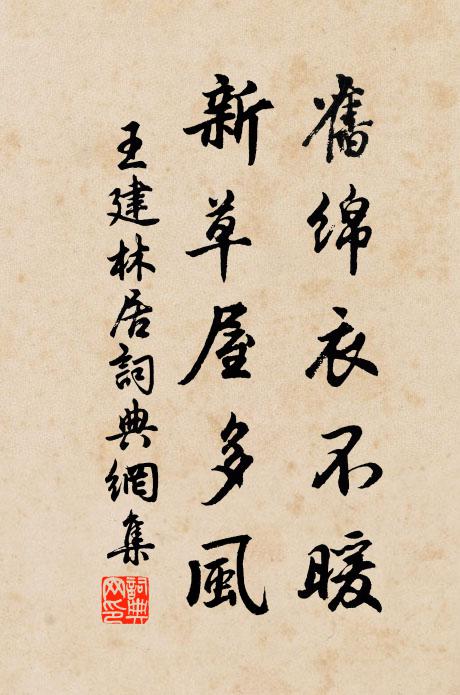 舊綿衣不暖
新草屋多風
王建林居詞典網集
詞典
网印